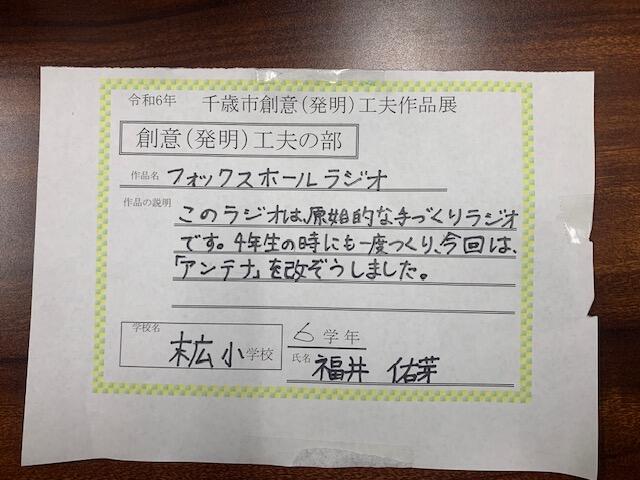 令和6年 千歳市創意（発明）工夫作品展
創意（発明）工夫の部
作品名 フォックスホールラジオ
作品の説明 このラジオは、原始的な手づくりラジオ
です。4年生の時にも一度つくり、今回は、
「アンテナ」を改ぞうしました。
学校名 末広小学校
6学年
氏名 福井 佑芽